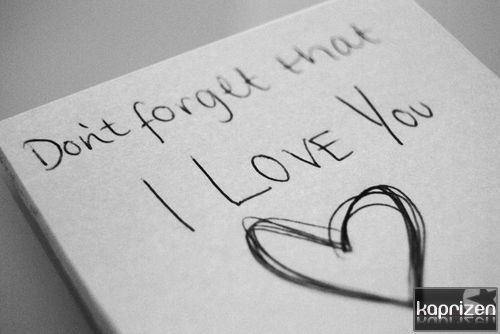 Don't forget that
I LOVE You
kaprizen